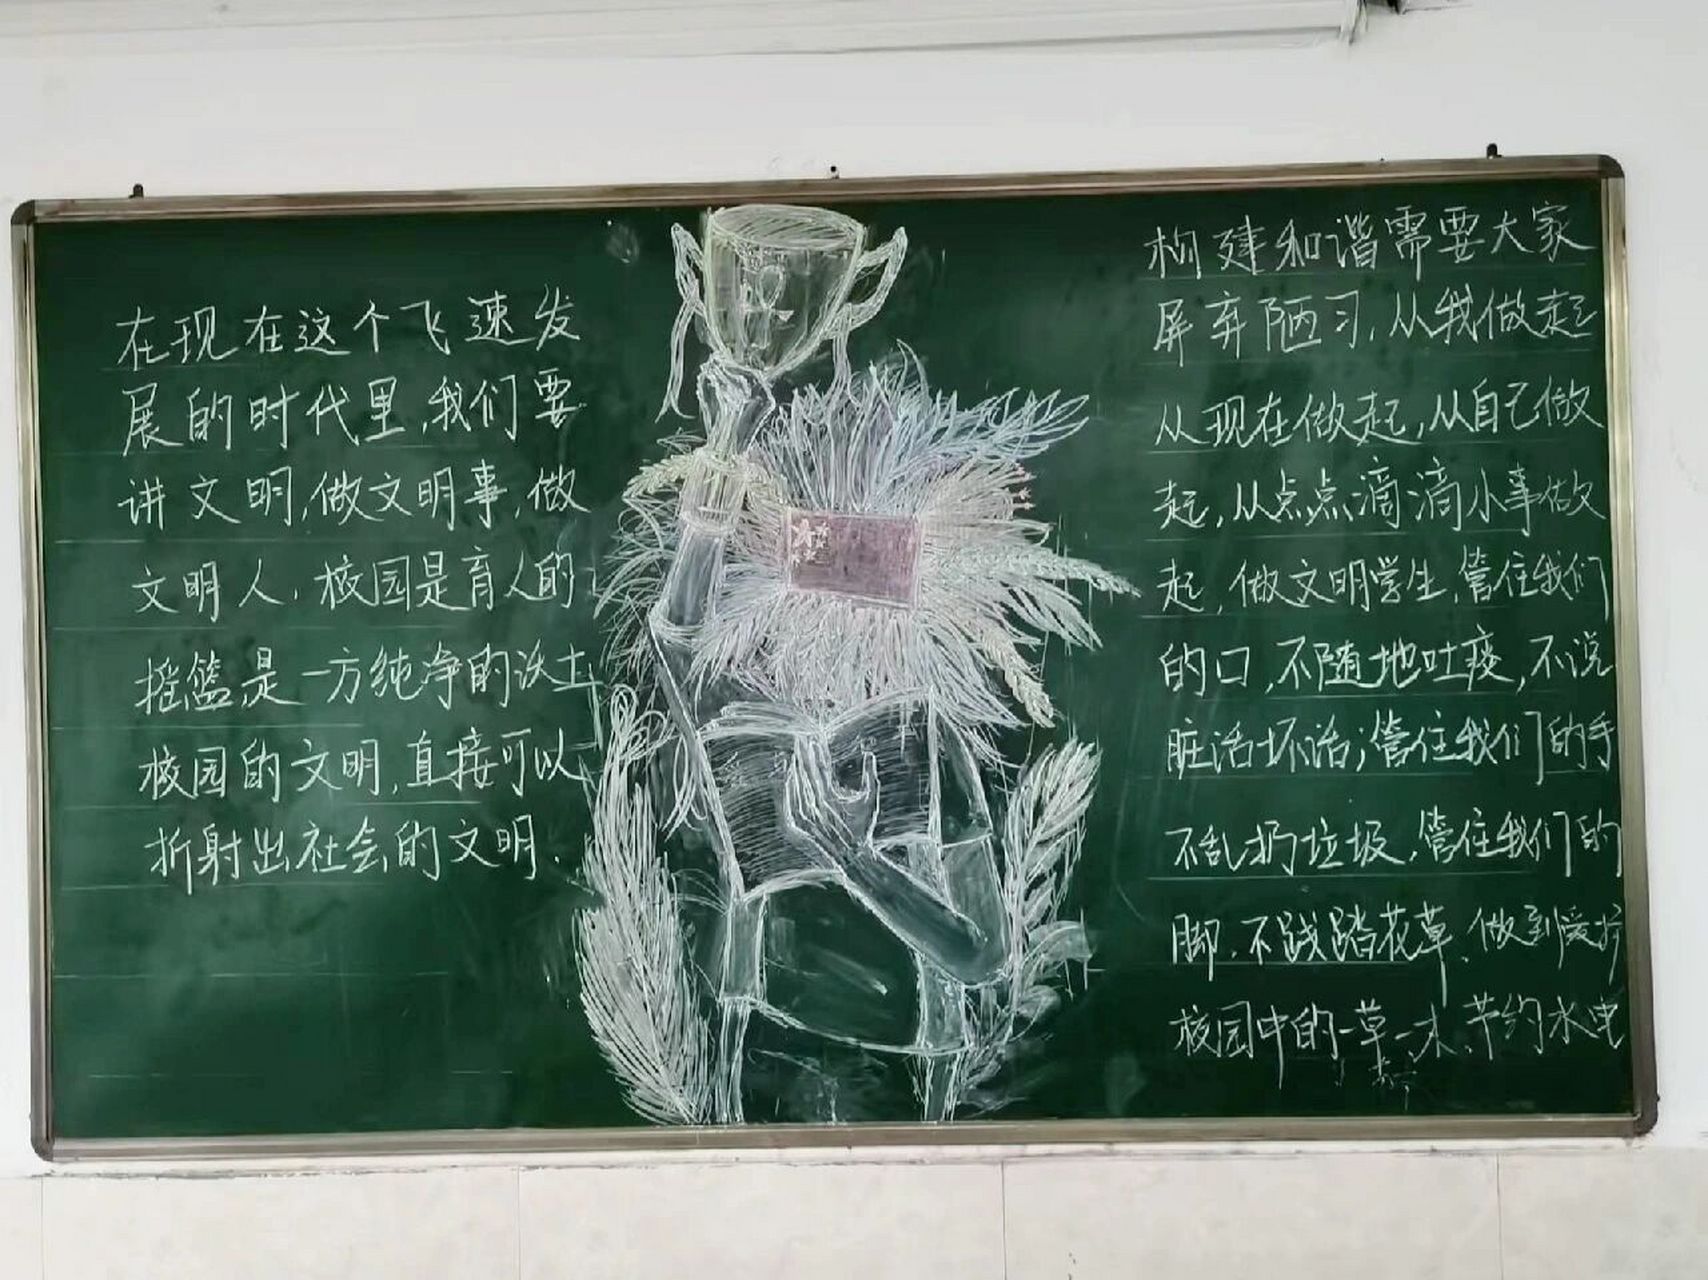 在现在这个飞速发
展的时代里,我们要
讲文明,做文明事,做
文明人.校园是育人的
摇篮,是一方纯净的沃土
校园的文明,直接可以
折射出社会的文明.
构建和谐需要大家
屏弃陋习,从我做起
从现在做起,从自己做
起,从点点滴滴小事做
起,做文明学生,管住我们
的口,不随地吐痰,不说
脏话坏话;管住我们的手
不乱扔垃圾,管住我们的
脚.不践踏花草.做到爱护
校园中的一草一木.节约水电